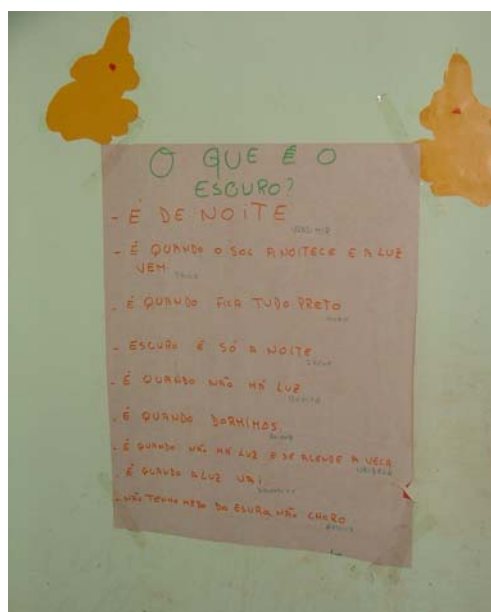 O QUE É O
ESCURO?
- É DE NOITE
- É QUANDO O SOL ANOITECE E A LUZ
VEM.
- É QUANDO FICA TUDO PRETO
- ESCURO É SÓ A NOITE
- É QUANDO NÃO HÁ LUZ
- É QUANDO DORMIMOS.
- É QUANDO NÃO HÁ LUZ E SE ACENDE A VELA
- É QUANDO A LUZ VAI
- NÃO TENHO MEDO DO ESCURO, NÃO CHORO